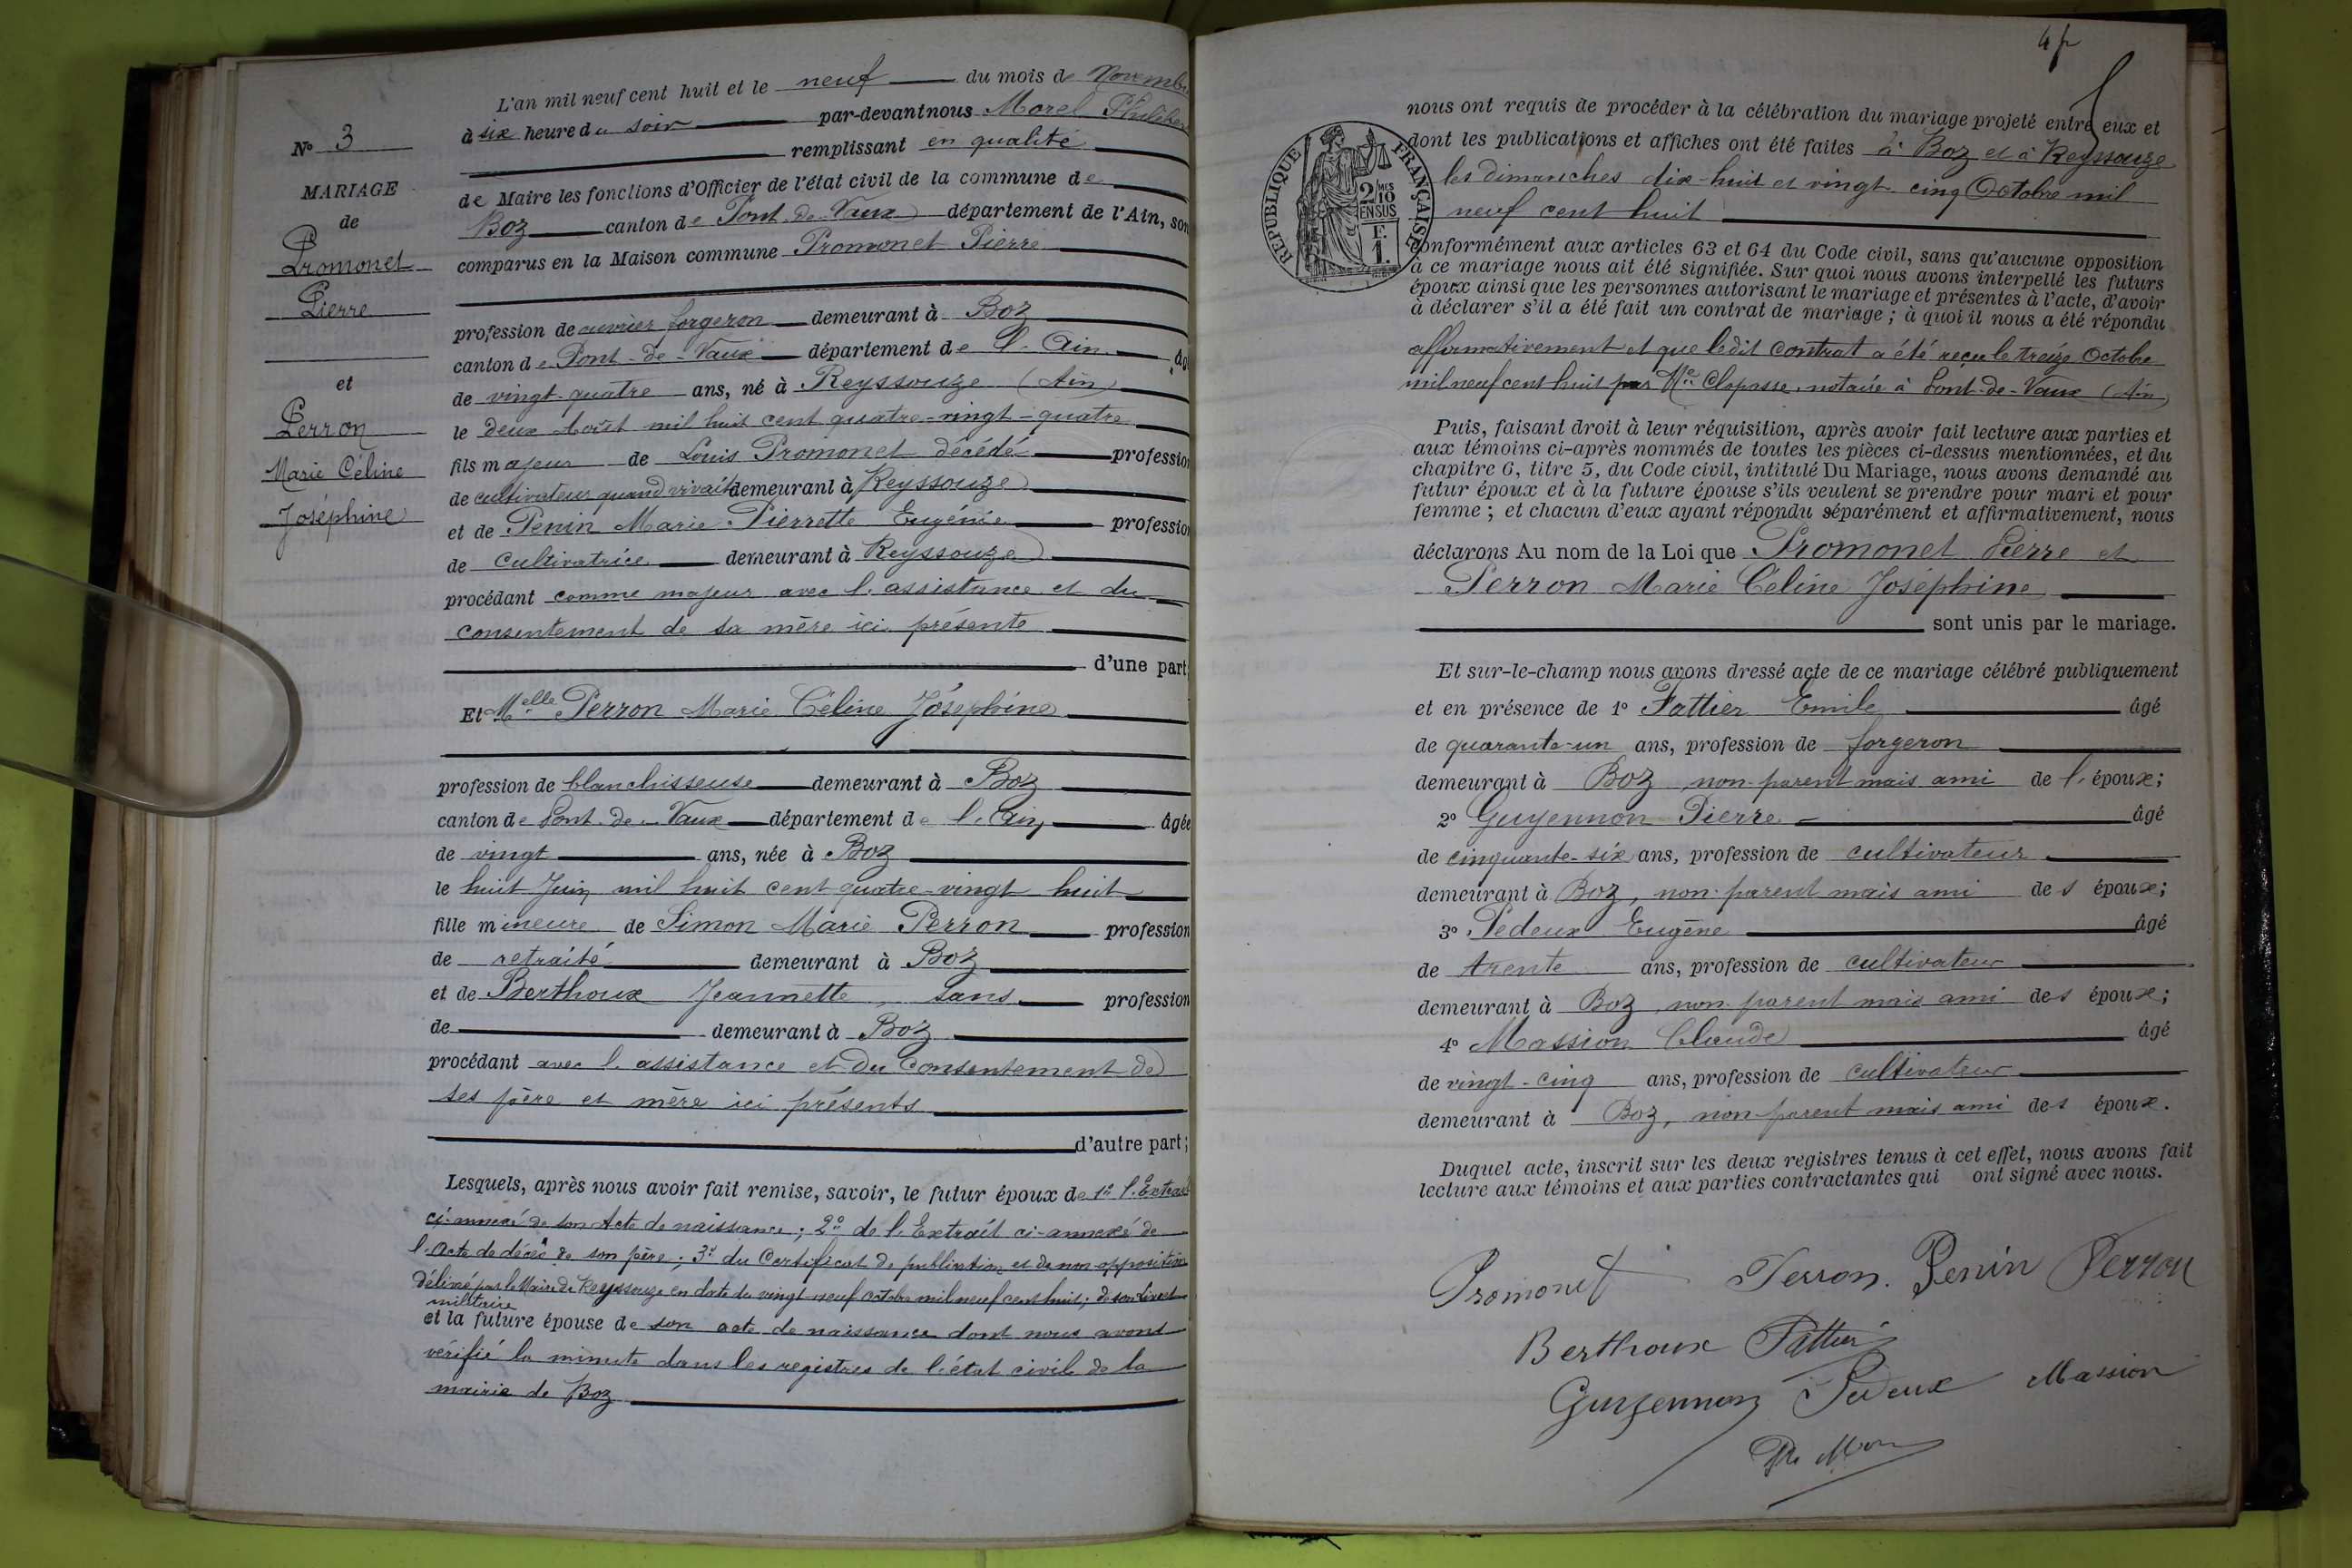 N° 3
MARIAGE
de
Promonet
Pierre
et
Perron
Marie Céline
Joséphine
L'an mil neuf cent huit et le neuf du mois de Novembre
à six heure du soir par-devant nous Morel Philibert
remplissant en qualité
de Maire les fonctions d'Officier de l'état civil de la commune de
Boz canton de Pont-de-Vaux département de l'Ain, sont
comparus en la Maison commune Promonet Pierre
profession de ouvrier forgeron demeurant à Boz
canton de Pont-de-Vaux département de l'Ain âgé
de vingt-quatre ans, né à Reyssouze (Ain)
le deux Août mil huit cent quatre-vingt-quatre
fils majeur de Louis Promonet décédé profession
de cultivateur quand vivait demeurant à Reyssouze
et de Penin Marie Pierrette Eugénie profession
de cultivatrice demeurant à Reyssouze
procédant comme majeur avec l'assistance et du
consentement de sa mère ici présente
d'une part;
Et Melle Perron Marie Céline Joséphine
profession de blanchisseuse demeurant à Boz
canton de Pont-de-Vaux département de l'Ain, âgée
de vingt ans, née à Boz
le huit Juin mil huit cent quatre-vingt huit
fille mineure de Simon Marie Perron profession
de retraité demeurant à Boz
et de Berthoux Jeannette, sans profession
de demeurant à Boz
procédant avec l'assistance et du consentement de
ses père et mère ici présents
d'autre part;
Lesquels, après nous avoir fait remise, savoir, le futur époux de 1° l'Extrait
ci-annexé de son Acte de naissance; 2° de l'Extrait ci-annexé de
l'Acte de décès de son père; 3° du Certificat de publication et de non opposition
délivré par le Maire de Reyssouze en date du vingt neuf octobre mil neuf cent huit; de son livret
militaire
et la future épouse de son acte de naissance dont nous avons
vérifié la minute dans les registres de l'état civil de la
mairie de Boz
nous ont requis de procéder à la célébration du mariage projeté entre eux et
dont les publications et affiches ont été faites à Boz et à Reyssouze
les dimanches dix-huit et vingt-cinq Octobre mil
neuf cent huit
REPUBLIQUE FRANÇAISE
2/10 MES
EN SUS
F.
1.
conformément aux articles 63 et 64 du Code civil, sans qu'aucune opposition
à ce mariage nous ait été signifiée. Sur quoi nous avons interpellé les futurs
époux ainsi que les personnes autorisant le mariage et présentes à l'acte, d'avoir
à déclarer s'il a été fait un contrat de mariage; à quoi il nous a été répondu
affirmativement et que ledit contrat a été reçu le treize Octobre
mil neuf cent huit par Me Clapasse, notaire à Pont-de-Vaux (Ain)
Puis, faisant droit à leur réquisition, après avoir fait lecture aux parties et
aux témoins ci-après nommés de toutes les pièces ci-dessus mentionnées, et du
chapitre 6, titre 5, du Code civil, intitulé Du Mariage, nous avons demandé au
futur époux et à la future épouse s'ils veulent se prendre pour mari et pour
femme; et chacun d'eux ayant répondu séparément et affirmativement, nous
déclarons Au nom de la Loi que Promonet Pierre et
Perron Marie Céline Joséphine
sont unis par le mariage.
Et sur-le-champ nous avons dressé acte de ce mariage célébré publiquement
et en présence de 1° Fattier Emile âgé
de quarante-un ans, profession de forgeron
demeurant à Boz non-parent mais ami de l'époux;
2° Guyennon Pierre âgé
de cinquante-six ans, profession de cultivateur
demeurant à Boz, non-parent mais ami des époux;
3° Pedeux Eugène âgé
de trente ans, profession de cultivateur
demeurant à Boz, non-parent mais ami des époux;
4° Massion Claude âgé
de vingt-cinq ans, profession de cultivateur
demeurant à Boz, non-parent mais ami des époux.
Duquel acte, inscrit sur les deux registres tenus à cet effet, nous avons fait
lecture aux témoins et aux parties contractantes qui ont signé avec nous.
Promonet Perron. Penin Perron
Berthoux Fattier
Guyennon Pedeux Massion